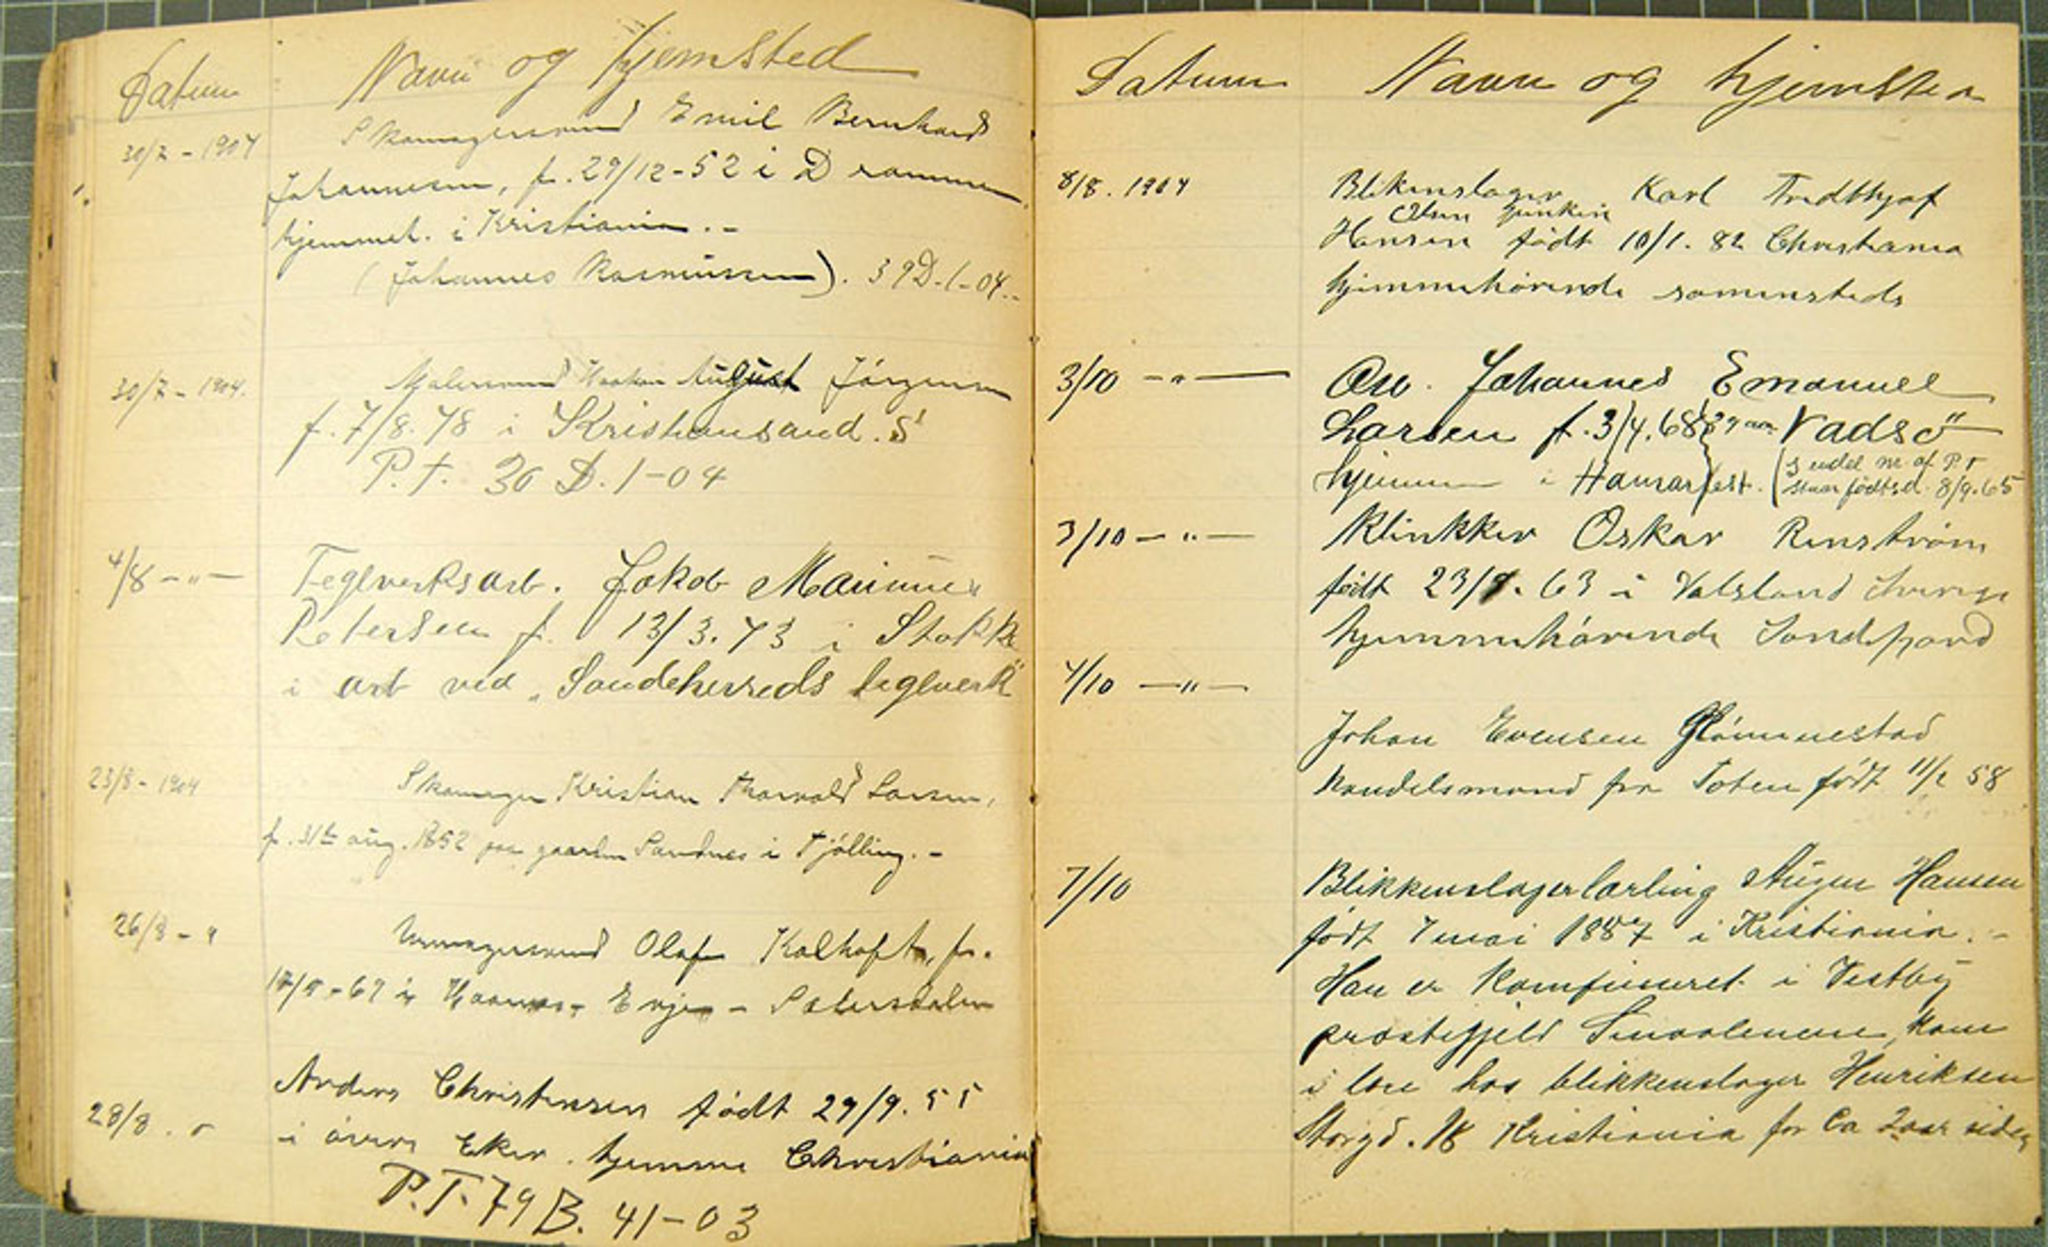 Datum Navn og hjemsted
30/7 - 1904 Skomagersvend Emil Bernhard
Johannesen, f. 29/12-52 i Drammen
hjemmeh. i Kristiania. -
(Johannes Rasmussen). 39 D. 1-04.
30/7 - 1904. Malersvend Haakon August Jörgensen
f. 7/8. 78 i Kristiansand. S
P.T. 30 D. 1-04
4/8 - " - Teglverksarb. Jakob Marinius
Petersen f. 13/3. 73 i Stokke
i arb ved "Sandeherreds teglverk"
23/8 - 1904 Skomager Kristian Thorvald Larsen,
f. 31te aug. 1852 paa gaarden Sandnes i Tjølling. -
26/8 - " Urmagersvend Olaf Kalhoft, f.
- 67 i - Evje - Sætersdalen
28/8. " Anders Christensen født 29/9. 55
i övre Eker. hjemme Christiania
P.T. 79 B. 41-03
Datum Navn og hjemsted
8/8. 1904 Blikenslager Karl Fredthjof
Olsen
Hansen født 10/1. 82 Christiania
hjemmehörende sammesteds
3/10 - " - Arb. Johannes Emanuel
Larsen f. 3/4. 68 Vadsö
hjemme i Hammerfest. (
staar födtsd. 8/9. 65
3/10 - " - Klinkker Oskar Renström
født 23/ 63 i Sverige
hjemmehörende Sandefjord
4/10 - " -
Johan Evensen Glömmestad
Handelsmand fra Toten født 11/2 58
7/10 Blikkenslagerlærling Hansen
født 7 mai 1887 i Kristiania. -
Han er Konfirmeret i Vestby
præstegjeld Smaalenene, kom
i lære hos blikkenslager Henriksen
Storgd. Kristiania for Ca 2 aar siden